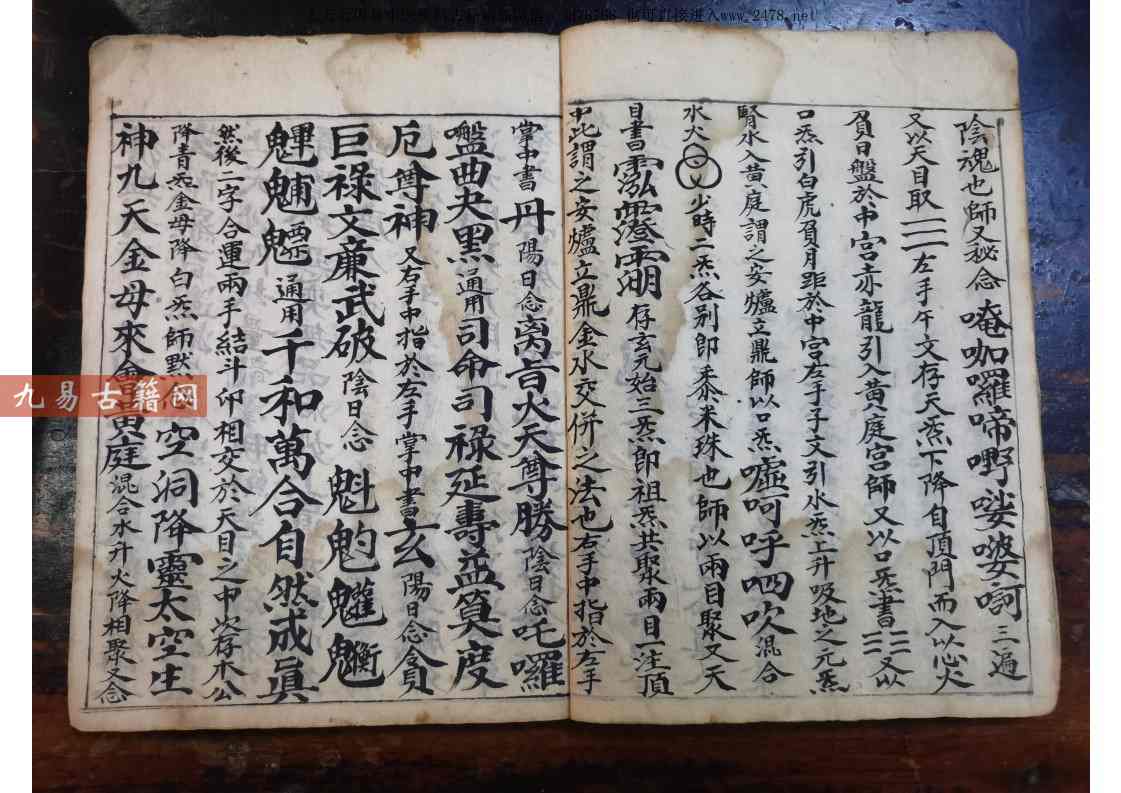 也可直接进入www.2478.net
陰魂也師又秘念唵咖囉啼嘢嘙啰婆啊三遍
又以天目取三左手午文存天炁下降自頂門而入以心火
負日盤於中宮赤龍引入黃庭宮師又以口炁書☵又以
口炁引白虎負月距於中宮左手子文引水炁上升吸地之元炁
腎水入黃庭謂之安爐立鼎師以口炁噓呵呼呬吹混合
水火乂少時二炁各别即黍米珠也師以兩目聚又天
目書存玄元始三炁即祖炁共聚兩目一注頂
中此謂之安爐立鼎金水交併之法也右手中指於左手
掌中書丹陽日念离旨火天尊勝陰日念吒囉
囕曲夬黑通用司命司祿延壽益算度
厄尊神又右手中指於左手掌中書玄陽日念貪
巨祿文廉武破陰日念魁𩲃䰢魒
魓䰣通用千和萬合自然成眞
然後二字合運兩手結斗印相交於天目之中次存木公
降青炁金母降白炁師默念空洞降靈太空生
神九天金母來會黃庭混合水升火降相聚又念
九易古籍网